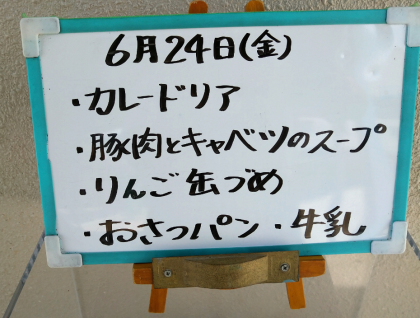 6月24日(金)
・カレードリア
・豚肉とキャベツのスープ
・りんご缶づめ
・おさつパン・牛乳